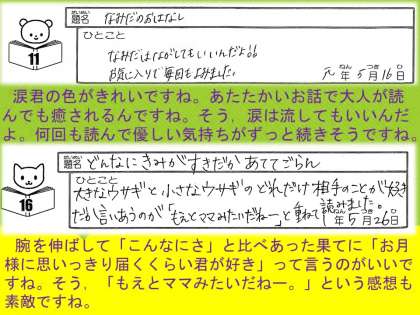 だいめい
題名 なみだのおはなし
ひとこと
なみだはながしてもいいんだよ!!
お気に入りで毎回もよみました。
11
元年5月16日
ねん がつ にち
涙君の色がきれいですね。あたたかいお話で大人が読
んでも癒されるんですね。そう,涙は流してもいいんだ
よ。何回も読んで優しい気持ちがずっと続きそうですね。
だいめい
題名 どんなにきみがすきだかあててごらん
ひとこと
大きなウサギと小さなウサギのどれだけ相手のことが好き
だか言いあうのが「もえとママみたいだねー」と重ねて読みました。
16
年5月26日
腕を伸ばして「こんなにさ」と比べあった果てに「お月
様に思いっきり届くくらい君が好き」って言うのがいいで
すね。そう,「もえとママみたいだねー。」という感想も
素敵ですね。